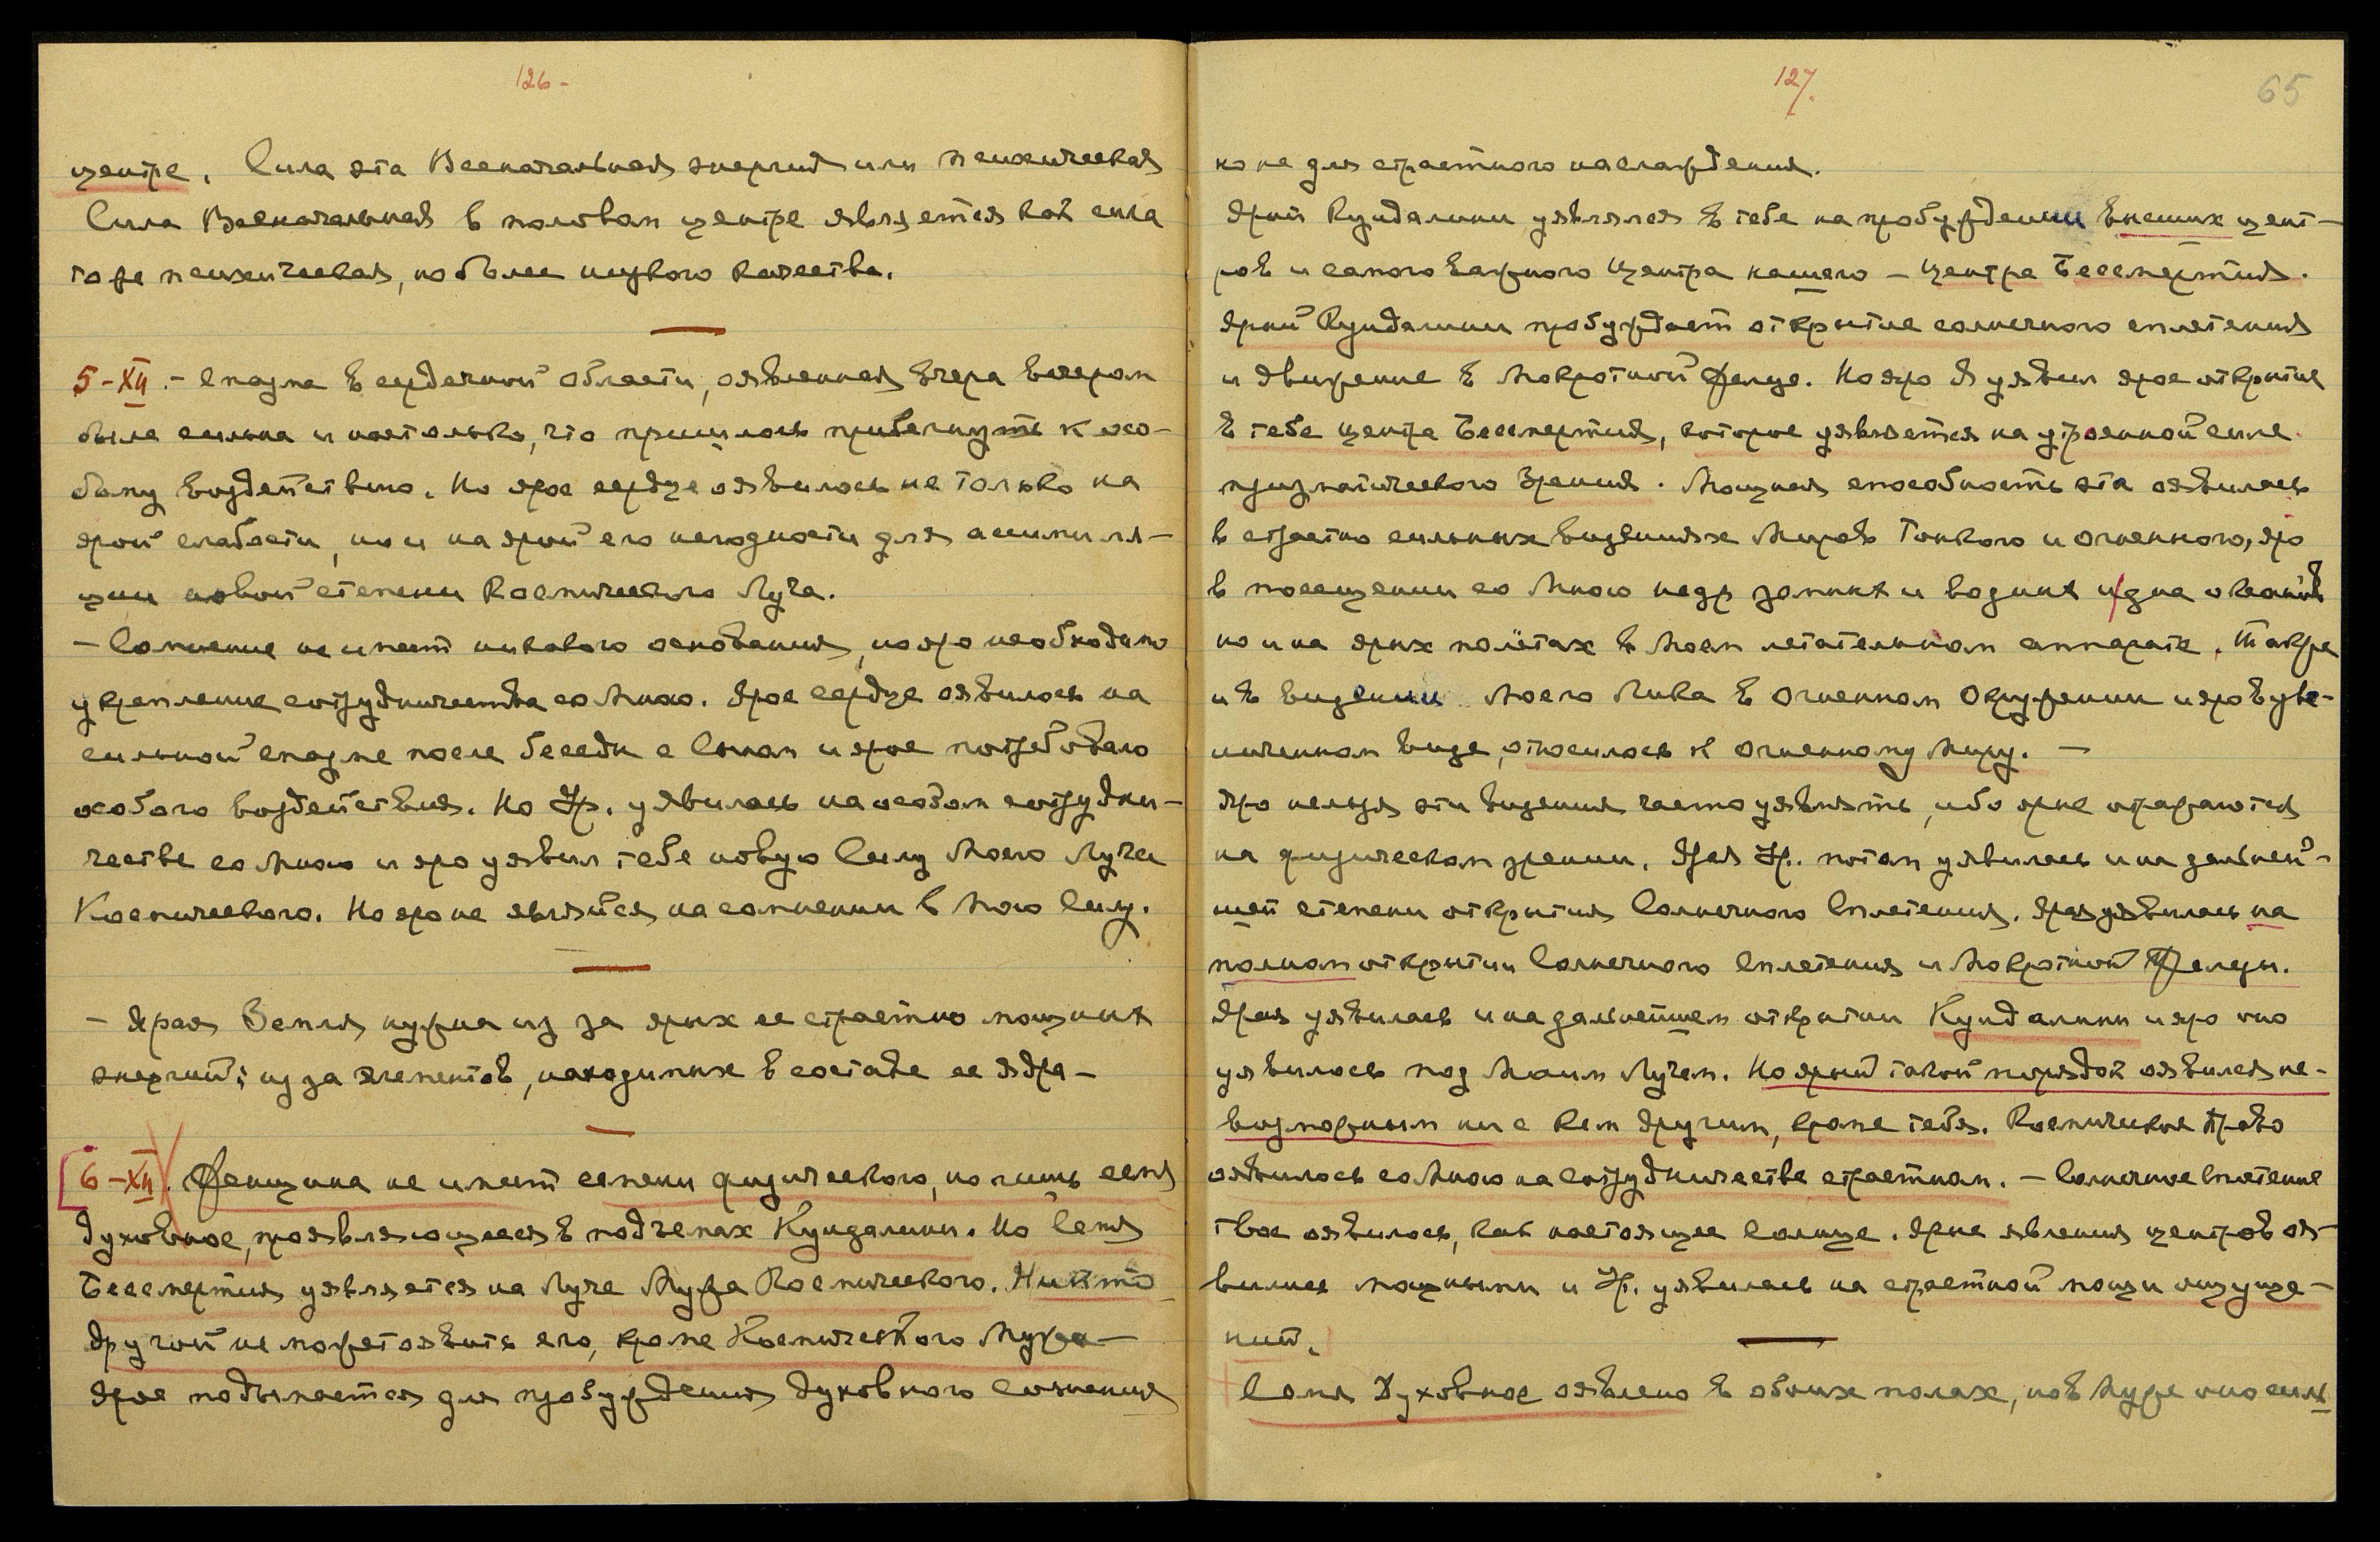 126-
центре. Сила эта Всеначальная энергия или психическая
Сила Всеначальная в половом центре является как сила
та же психическая, но более низкого качества.
5-XII.- Спазма в сердечной области, оявленная вчера вечером
была сильна и настолько, что пришлось прибегнуть к осо-
бому воздействию. Но ярое сердце оявилось не только на
ярой слабости, но и на ярой его негодности для ассимиля-
ции новой степени Космического Луча.
- Сомнение не имеет никакого основания, но яро необходимо
укрепление сотрудничества со Мною. Ярое сердце оявилось на
сильной спазме после беседы с Сыном и ярое потребовало
особого воздействия. Но Ур. уявилась на особом сотрудни-
честве со Мною и яро уявил тебе новую Силу Моего Луча
Космического. Но яро не являйся на сомнении в Мою Силу.
- Ярая Земля нужна из за ярых ее страстно мощных
энергий; из за элементов, находимых в составе ее ядра-
6-XII. Женщина не имеет семени физического, но лишь семя
духовное, проявляющееся в подъемах Кундалини. Но Семя
Бессмертия уявляется на Луче Мужа Космического. Никто
другой не может оявить его, кроме Космического Мужа-
Ярое подымается для пробуждения духовного сознания
127.
65
но не для страстного наслаждения.
Ярый Кундалини уявлялся в тебе на пробуждении высших цент-
ров и самого важного Центра нашего - Центра Бессмертия.
Ярый Кундалини пробуждает открытие солнечного сплетения
и движение в Мокротной Железе. Но яро Я уявил ярое открытие
в тебе центра Бессмертия, которое уявляется на утроенной силе
призматического Зрения. Мощная способность эта оявилась
в страстно сильных видениях Миров Тонкого и Огненного, яро
в посещении со Мною недр земных и водных и дна океанов
но и на ярых полётах в Моем летательном аппарате. Также
и в видении Моего Лика в Огненном Окружении и яро в уве-
личенном виде, относилось к Огненному Миру. -
Яро нельзя эти видения часто уявлять, ибо ярые отражаются
на физическом зрении. Ярая Ур. потом уявилась и на дальней-
шей степени открытия Солнечного Сплетения. Ярая уявилась на
полном открытии Солнечного Сплетения и Мокротной Железы.
Ярая уявилась и на дальнейшем открытии Кундалини и яро оно
уявилось под Моим Лучем. Но ярый такой порядок оявился не-
возможным ни с кем другим, кроме тебя. Космическое Право
оявилось со Мною на сотрудничестве страстном. - Солнечное Сплетение
твое оявилось, как настоящее Солнце. Ярые явления центров оя-
вились мощными и Ур. уявилась на страстной мощи ощуще-
ний.
Семя Духовное оявлено в обоих полах, но в Муже оно силь-